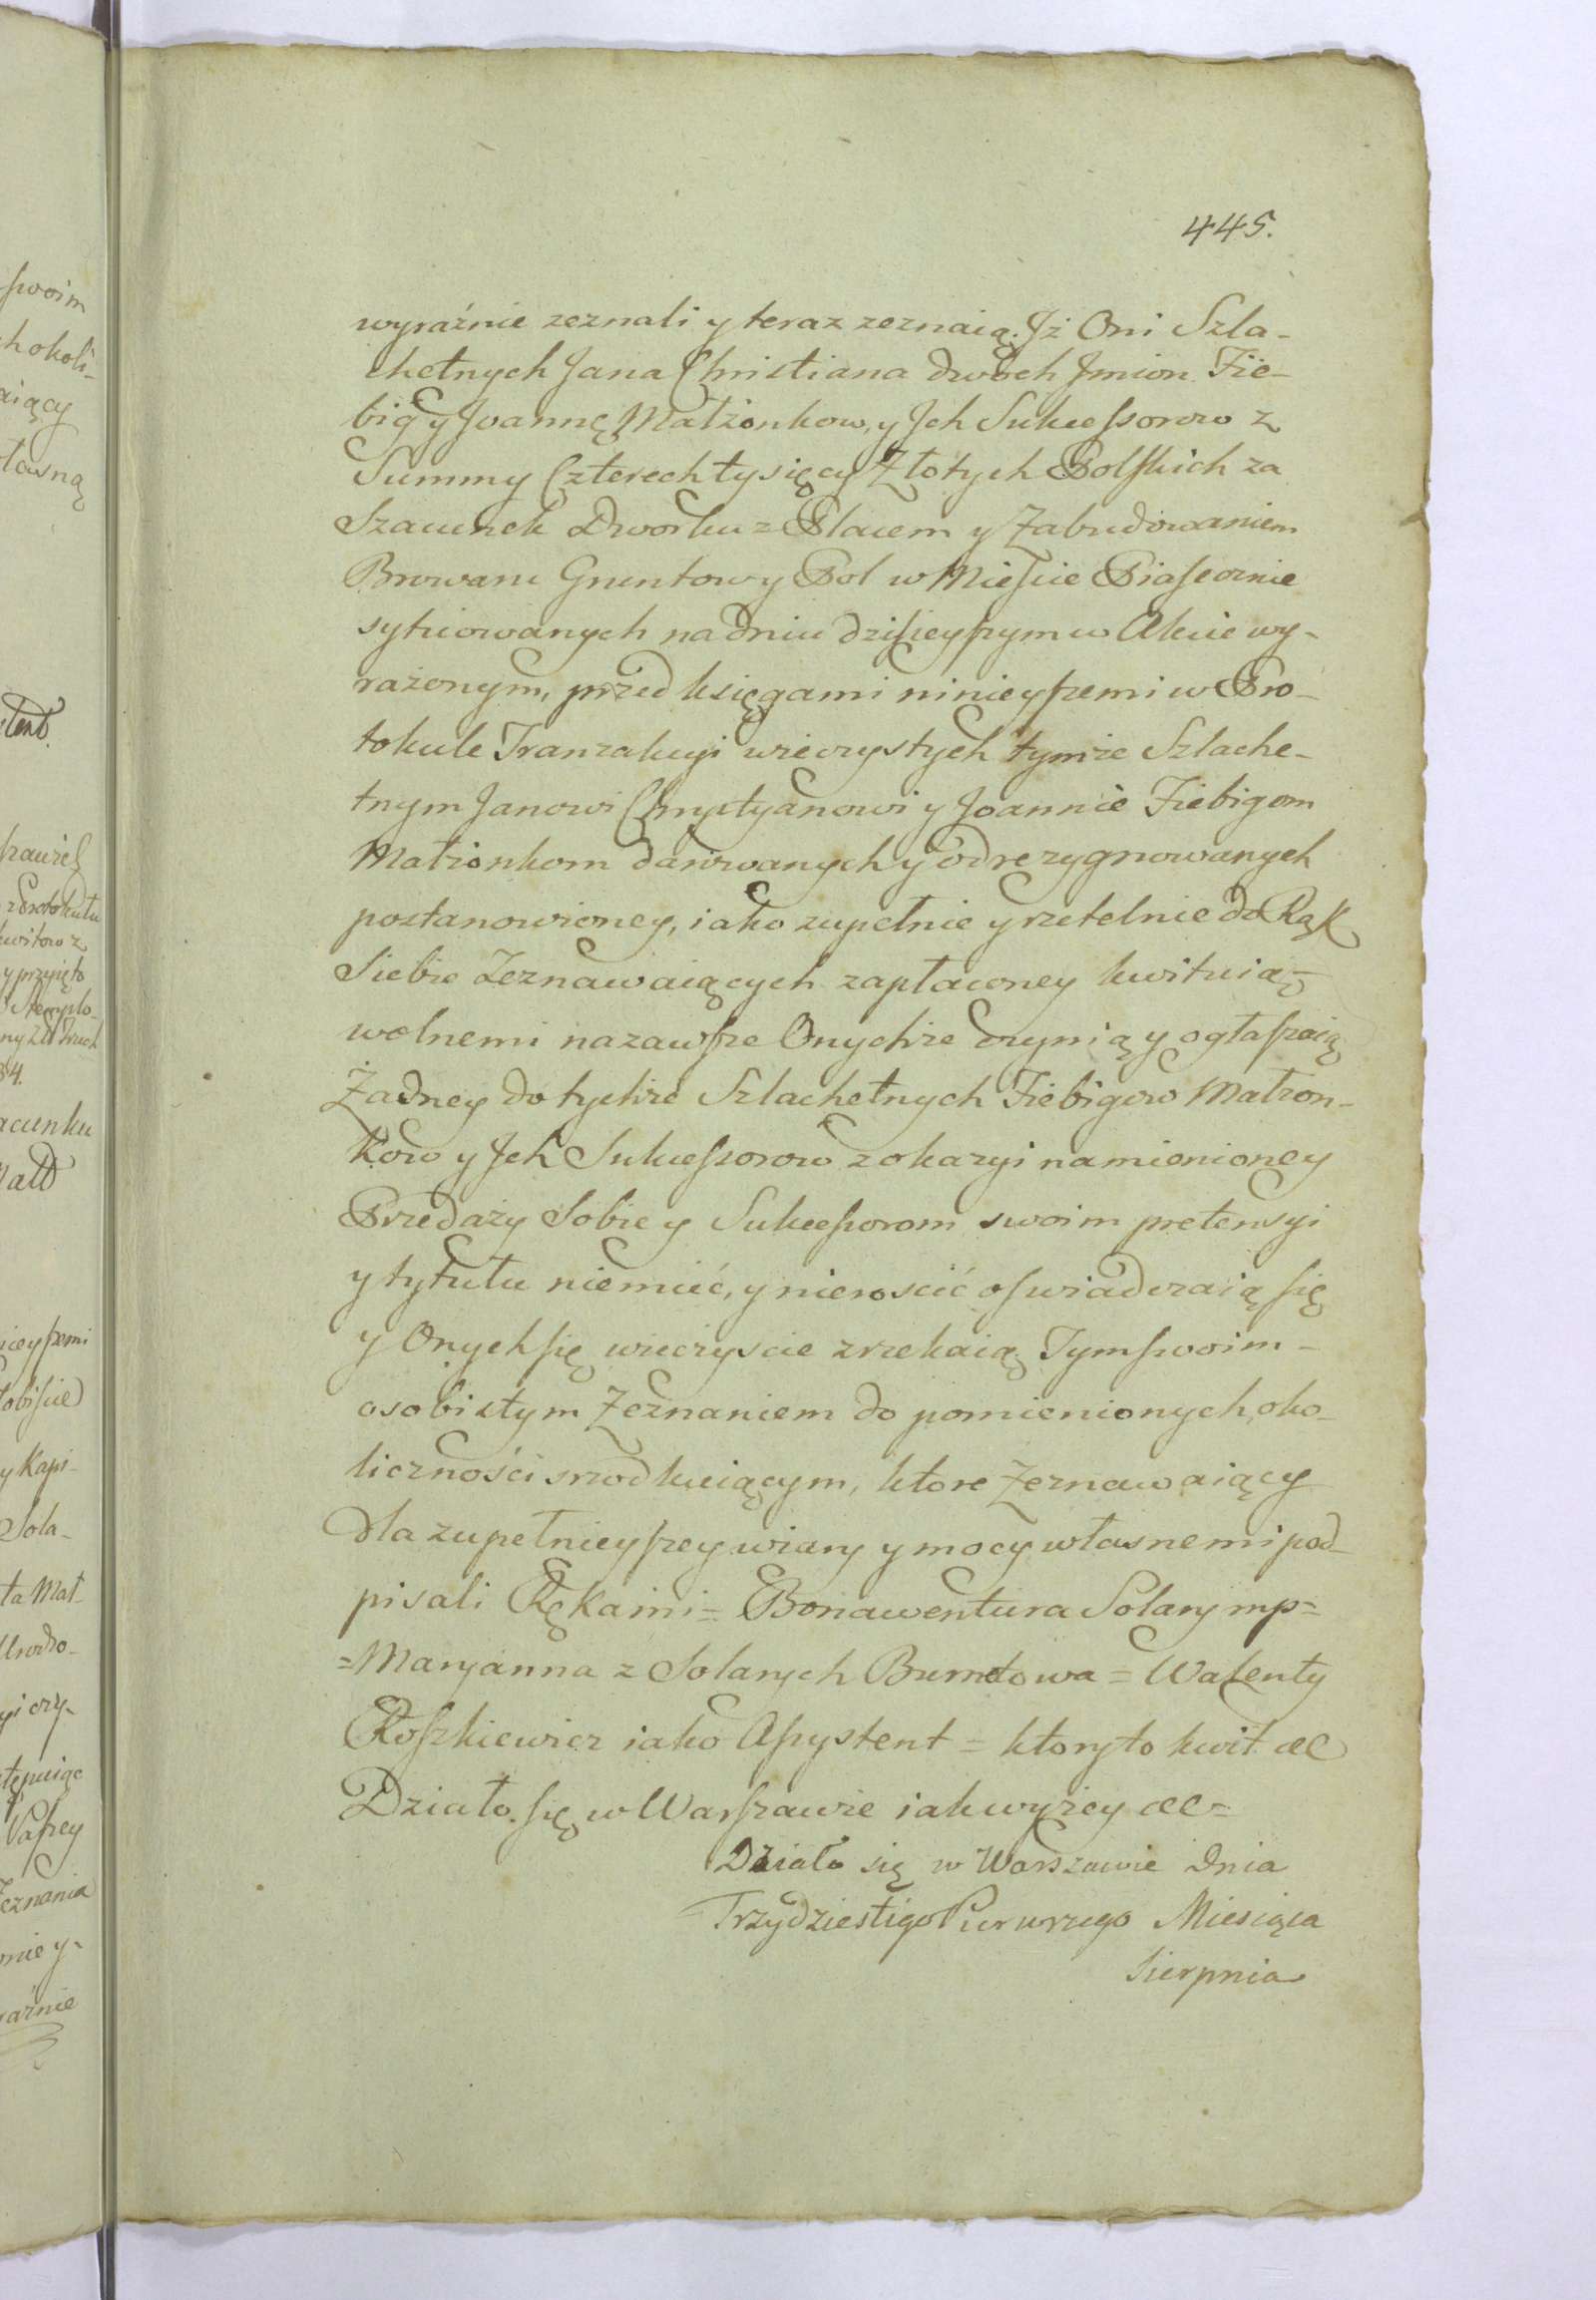 445.
wyraźnie zeznali y teraz zeznaią. Jż Oni Szla-
chetnych Jana Christiana dwoch Jmion Fie-
big y Joannę Małżonkow, y Jch Sukcessorow z
Summy Czterech tysięcy Złotych Polskich za
Szacunek Dworku z Placem y Zabudowaniem
Browaru Gruntow y Pol w Mieście Piasecznie
sytuowanych na dniu dzisieyszym w Akcie wy-
rażonym, przed księgami ninieyszemi w Pro-
tokule Tranzakcyi wieczystych tymże Szlache-
tnym Janowi Chrystyanowi y Joannie Fiebigom
Małżonkom darowanych y odrezygnowanych
postanowioney, iako zupełnie y rzetelnie do Rąk
Siebie Zeznawaiących zapłaconey kwituią =
wolnemi nazawsze Onychże czynią y ogłaszaią
Żadney do tychże Szlachetnych Fiebigow Małżon-
kow y Jch Sukcessorow z okazyi namienioney
Przedaży Sobie y Sukcessorom swoim pretensyi
y tytułu niemieć, y nierościć oswiadczaią się
y Onych się wieczyscie zrzekaią. Tym swoim -
osobistym Zeznaniem do pomienionych oko-
liczności srzodkuiącym, ktore Zeznawaiący
dla zupełnieyszey wiary y mocy własnemi pod-
pisali Rękami = Bonawentura Solary mp =
= Maryanna z Solarych Burmetowa = Walenty
Roszkiewicz iako Assystent = ktoryto kwit etc
Działo się w Warszawie iak wyżey etc =
Działo się w Warszawie Dnia
Trzydziestego Pierwszego Miesiąca
Sierpnia